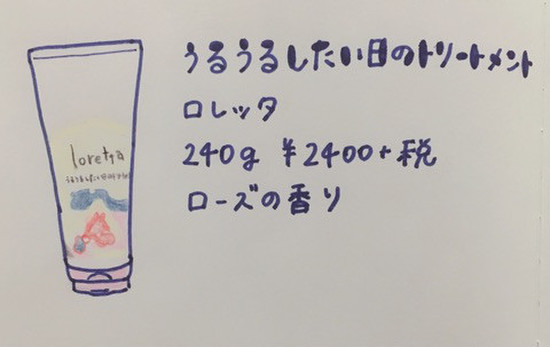 うるうるしたい日のトリートメント
ロレッタ
240g ¥2400+税
ローズの香り
loretta
うるうるしたい日のトリートメント